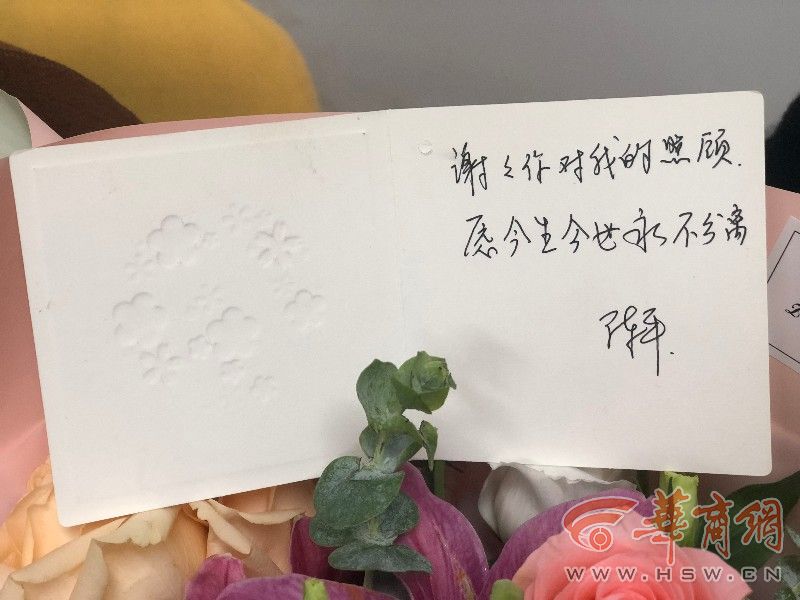 谢々你对我的照顾.
愿今生今世永不分离
陈平.
華商網
WWW.HSW.CN